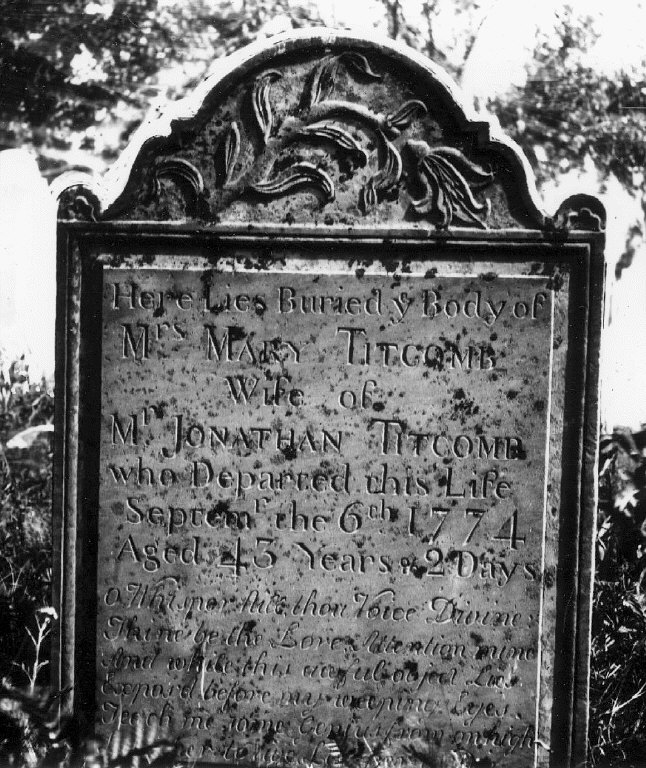 Here Lies Buried yͤ Body of
Mrs MARY TITCOMB
Wife of
Mr JONATHAN TITCOMB
who Departed this Life
Septemr the 6th 1774
Aged 43 Years & 2 Days
O Whisper thou Voice Divine
Thine be the Attention mine
And while this awful object Lies
Expos'd before my weeping Eyes
Teach me some from on high